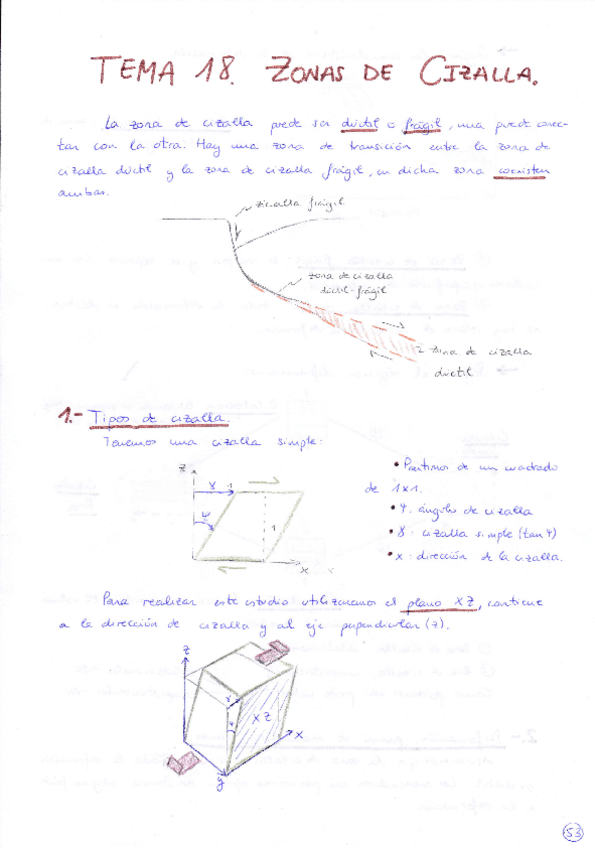 TEMA 18. ZONAS DE CIZALLA.
La zona de cizalla puede ser dúctil o frágil, una puede conec-
tar con la otra. Hay una zona de transición entre la zona de
cizalla dúctil y la zona de cizalla frágil, en dicha zona coexisten
ambas.
zizalla frágil
zona de cizalla
dúctil-frágil
zona de cizalla
dúctil
1.- Tipos de cizalla.
Tenemos una cizalla simple:
z
γ
1
ψ
1
x
x
• Partimos de un cuadrado
de 1x1.
• ψ: ángulo de cizalla
• γ: cizalla simple (tan ψ)
• x: dirección de la cizalla.
Para realizar este estudio utilizaremos el plano XZ, contiene
a la dirección de cizalla y al eje perpendicular (z).
z
γ
ψ
XZ
x
y
53